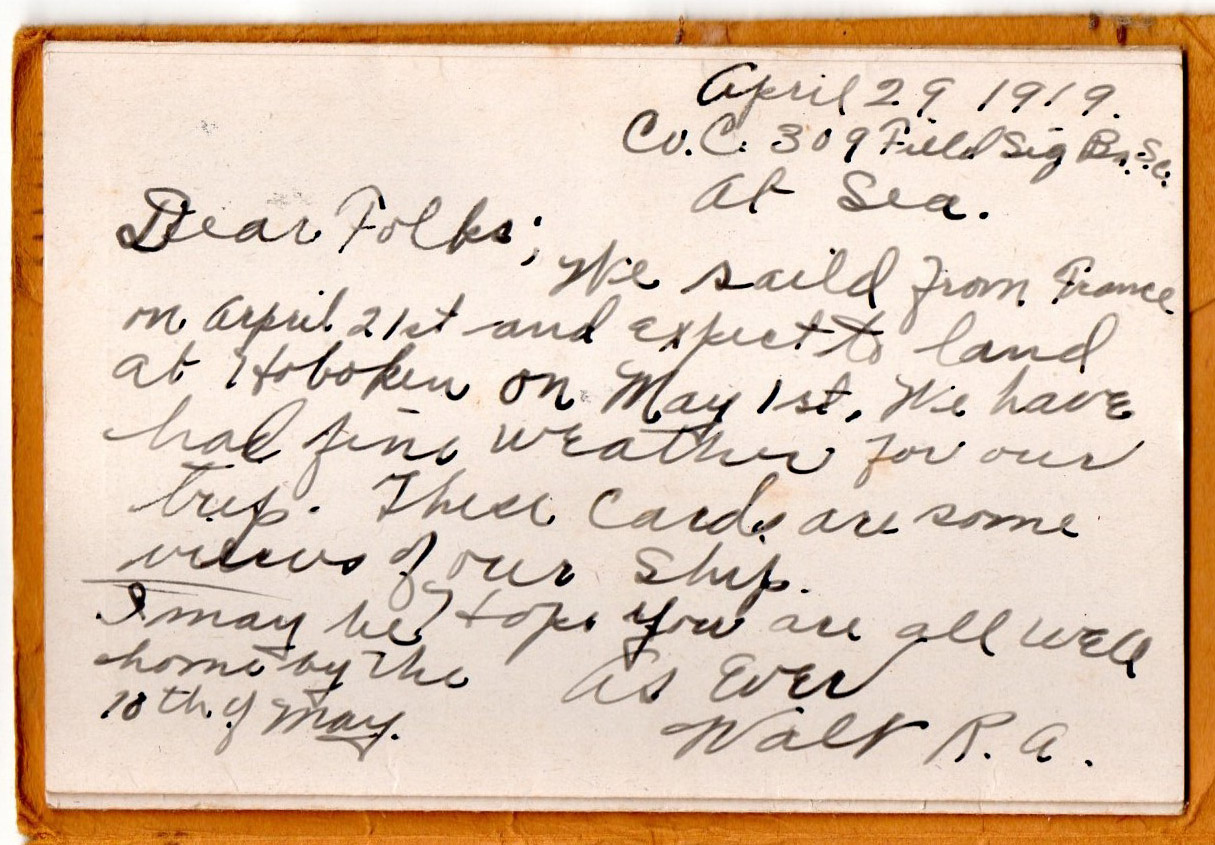 April 29 1919.
Co. C. 309 Field Sig Bn. S.C.
At Sea.
Dear Folks;
We saild from France
on April 21st and expect to land
at Hoboken on May 1st, We have
had fine weather for our
trip. These Cards are some
views of our Ship.
Hope you are all well
As Ever
Walt R. A.
I may be
home by the
10th of May.